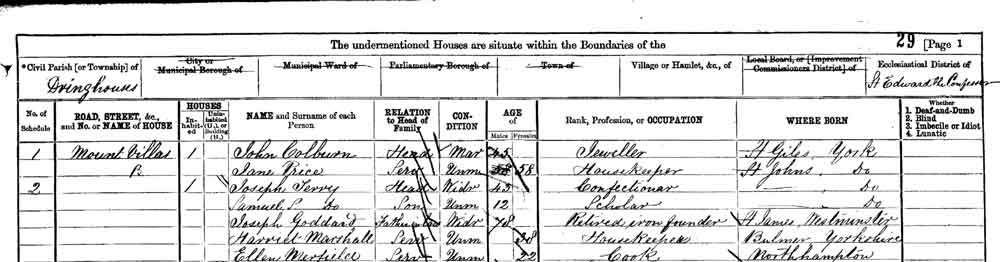 29 [Page 1
The undermentioned Houses are situate within the Boundaries of the
*Civil Parish [or Township] of City or Municipal Borough of Municipal Ward of Parliamentary Borough of Town of Village or Hamlet, &c., of Local Board, or [Improvement Commissioners District] of Ecclesiastical District of
Dringhouses St Edward the Confessor
No. of Schedule ROAD, STREET, &c., and No. or NAME of HOUSE HOUSES Inhabited Uninhabited (U.), or Building (B.) NAME and Surname of each Person RELATION to Head of Family CONDITION AGE of Males Females Rank, Profession, or OCCUPATION WHERE BORN Whether 1. Deaf-and-Dumb 2. Blind 3. Imbecile or Idiot 4. Lunatic
1 Mount Villas 1 John Colburn Head Mar 45 Jeweller St Giles York
Jane Price Serv Unm 58 58 Housekeeper St Johns Do
2 1 Joseph Terry Head Widr 45 Confectionar Do
Samuel S. Do Son Unm 12 Scholar Do
Joseph Goddard Widr 78 Retired iron founder St James Westminster
Harriet Marshall Serv Unm 38 Housekeeper Bulmer Yorkshire
Ellen Serv Unm 22 Cook Northhampton